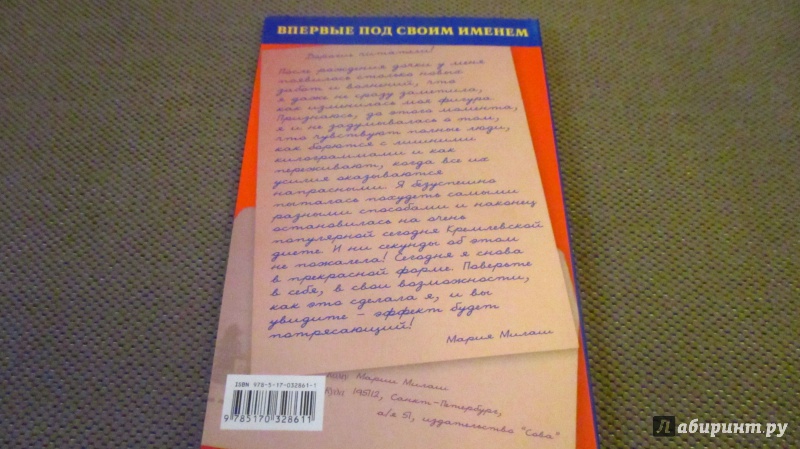 ВПЕРВЫЕ ПОД СВОИМ ИМЕНЕМ
Дорогие читатели!
После рождения дочки у меня
появилось столько новых
забот и волнений, что
я даже не сразу заметила,
как изменилась моя фигура.
Признаюсь, до этого момента
я и не задумывалась о том,
что чувствуют полные люди,
как борются с лишними
килограммами и как
переживают, когда все их
усилия оказываются
напрасными. Я безуспешно
пыталась похудеть самыми
разными способами и наконец
остановилась на очень
популярной сегодня Кремлевской
диете. И ни секунды об этом
не пожалела! Сегодня я снова
в прекрасной форме. Поверьте
в себя, в свои возможности,
как это сделала я, и вы
увидите – эффект будет
потрясающий!
Мария Милаш
Марии Милаш
195112, Санкт-Петербург,
а/я 51, издательство "Сова"
ISBN 978-5-17-032861-1
9 785170 328611
Лабиринт.ру